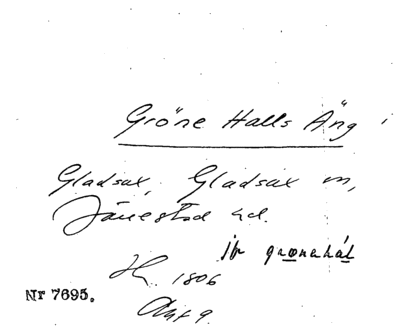 Gröne Halls Äng
Gladsax, Gladsax sn,
Järrestad hd.
jfr grønahál
H. 1806
Akt 9.
Nr 7695.